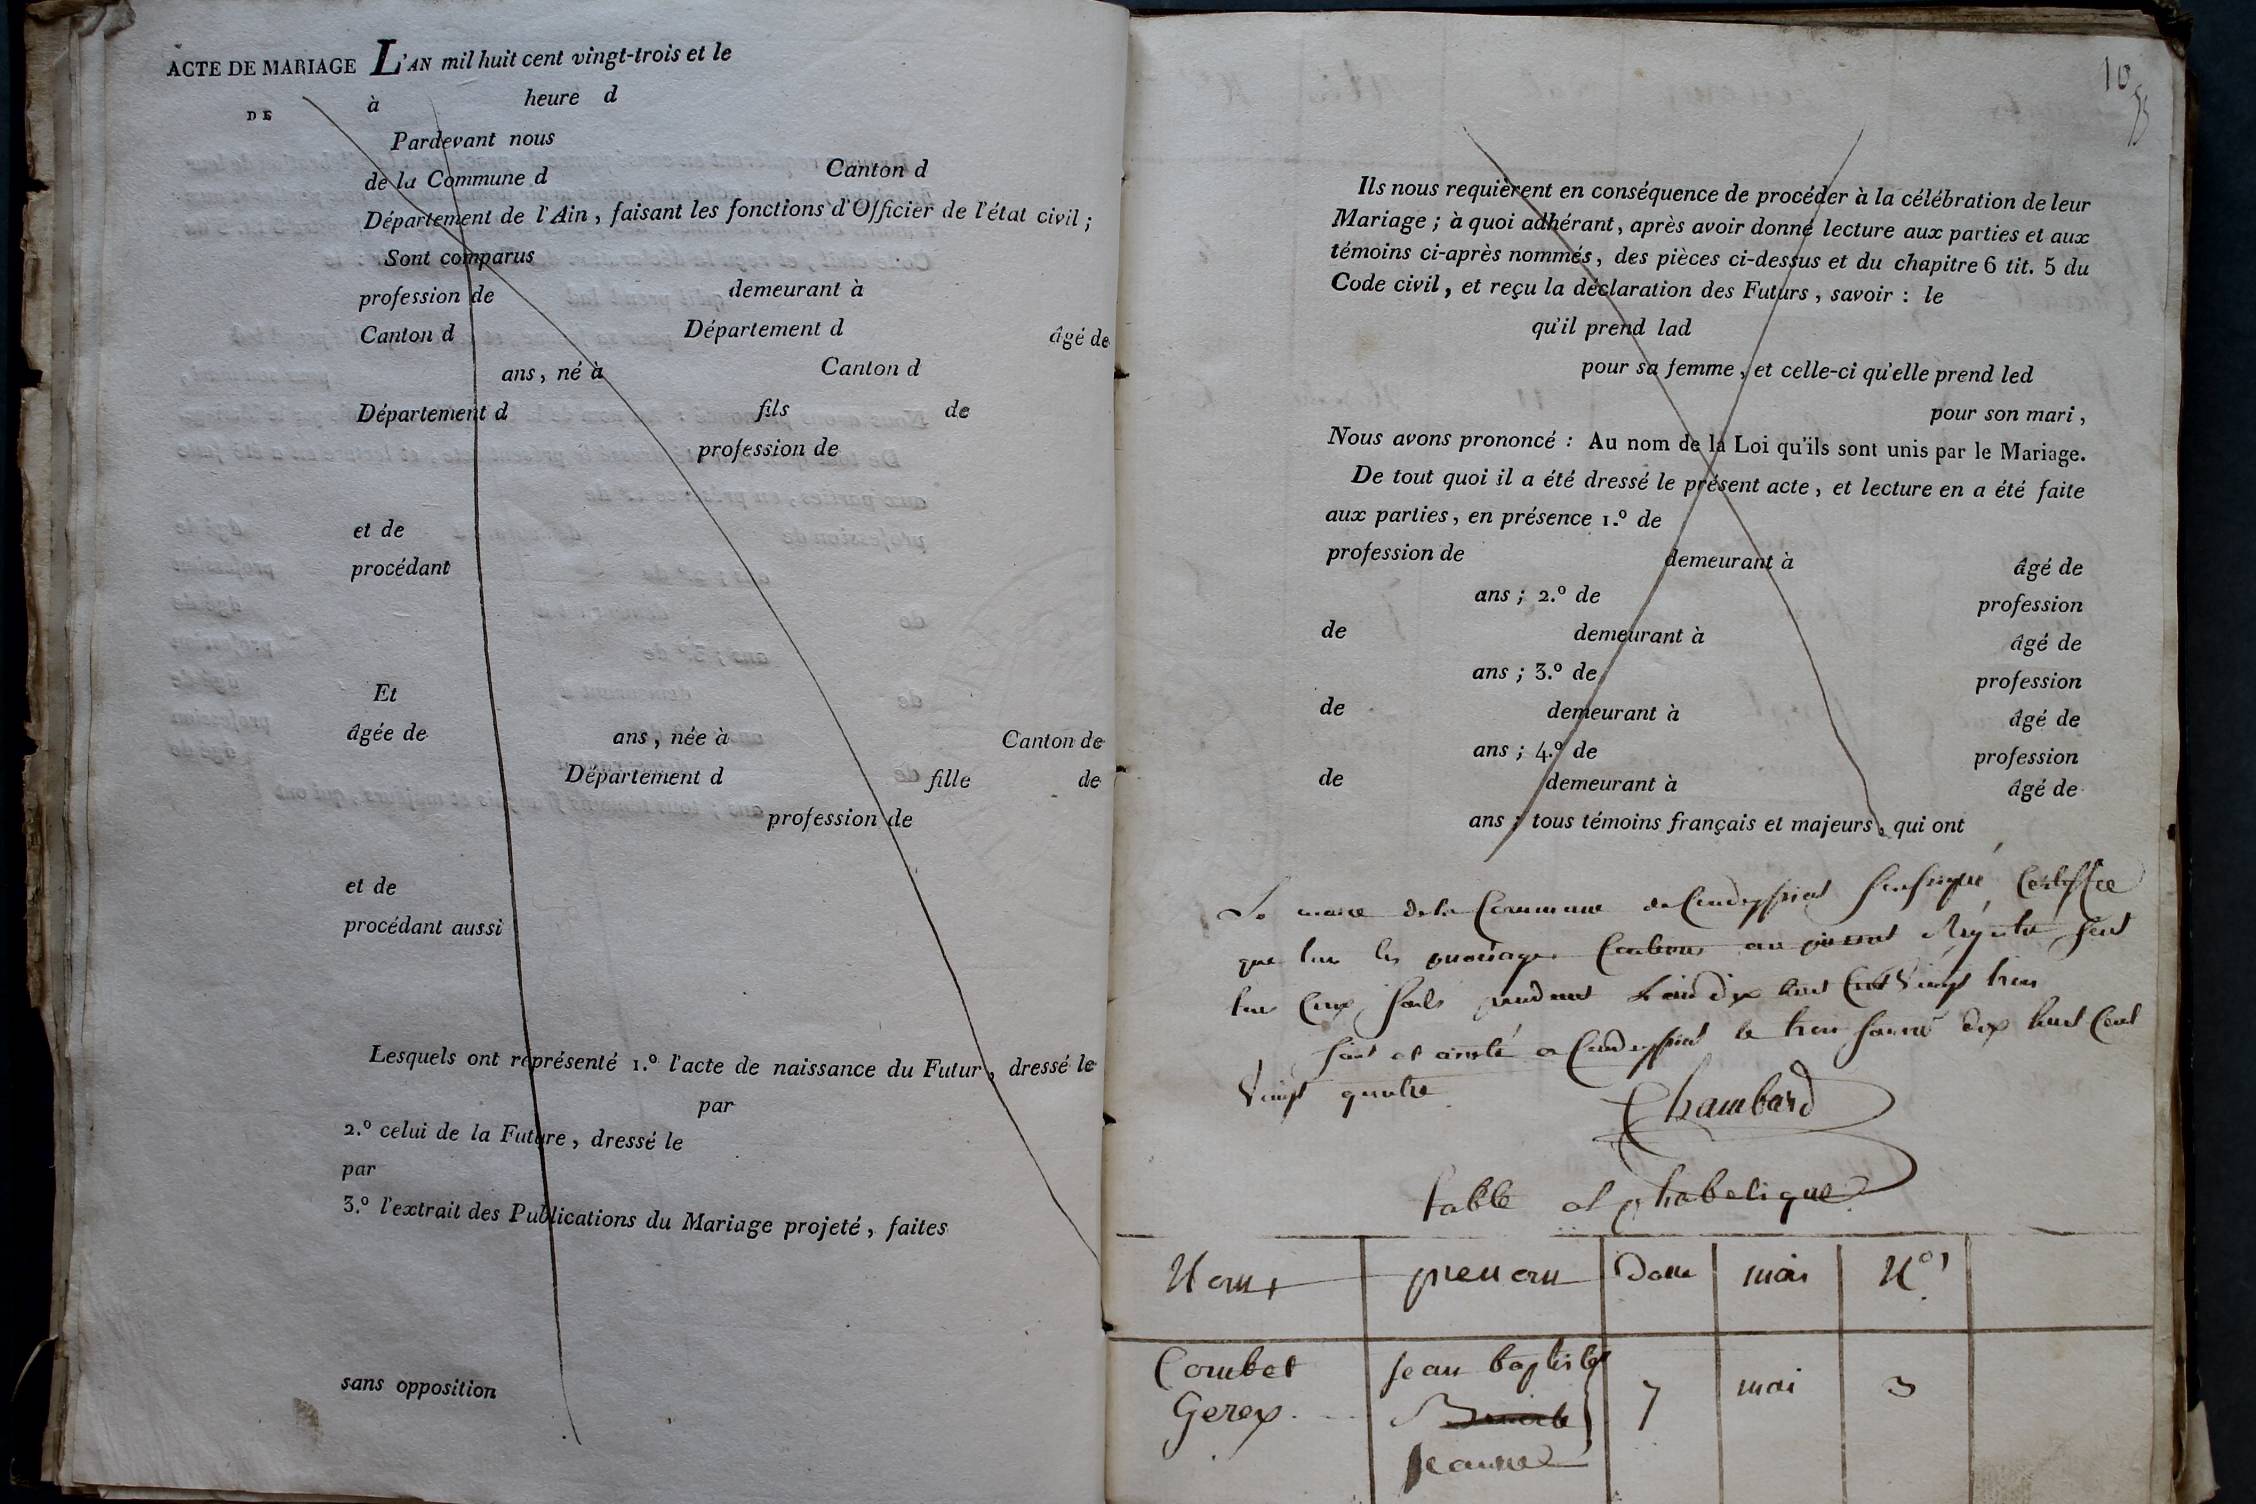 ACTE DE MARIAGE L'AN mil huit cent vingt-trois et le
DE
à heure d
Pardevant nous
de la Commune d Canton d
Département de l'Ain, faisant les fonctions d'Officier de l'état civil;
Sont comparus
profession de demeurant à
Canton d Département d âgé de
ans, né à Canton d
Département d fils de
profession de
et de
procédant
Et
âgée de ans, née à Canton de
Département d fille de
profession de
et de
procédant aussi
Lesquels ont représenté 1.º l'acte de naissance du Futur, dressé le
par
2.º celui de la Future, dressé le
par
3.º l'extrait des Publications du Mariage projeté, faites
sans opposition
10
Ils nous requièrent en conséquence de procéder à la célébration de leur
Mariage; à quoi adhérant, après avoir donné lecture aux parties et aux
témoins ci-après nommés, des pièces ci-dessus et du chapitre 6 tit. 5 du
Code civil, et reçu la déclaration des Futurs, savoir : le
qu'il prend lad
pour sa femme, et celle-ci qu'elle prend led
pour son mari,
Nous avons prononcé : Au nom de la Loi qu'ils sont unis par le Mariage.
De tout quoi il a été dressé le présent acte, et lecture en a été faite
aux parties, en présence 1.º de
profession de demeurant à âgé de
ans; 2.º de profession
de demeurant à âgé de
ans; 3.º de profession
de demeurant à âgé de
ans; 4.º de profession
de demeurant à âgé de
ans; tous témoins français et majeurs, qui ont
Le maire de la Commune de soussigné Certiffie
que tous les mariages Contenus au présent Régistre sont
tous ceux faits pendant Lan dix huit Cent Vingt trois
fait et arreté a le trois dix huit Cent
Vingt quatre
Chambard
table alphabetique
Noms prenom Date mois Nos
Combet jean baptiste 7 mai 3
Gerex
jeanne